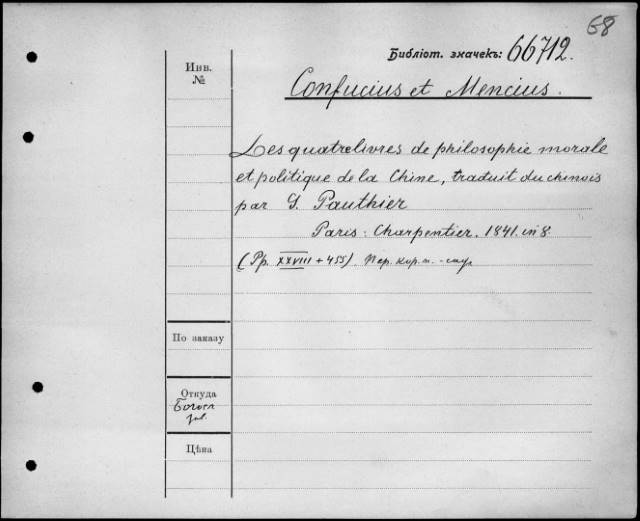 68
Библіот. значекъ: 66712.
Инв.
№
Confucius et Mencius.
Les quatre livres de philosophie morale
et politique de la Chine, traduit du chinois
par G. Pauthier
Paris: Charpentier. 1841. in 8.
(Pp. XXVIII + 455). Пер. кор.
По заказу
Откуда
Цѣна